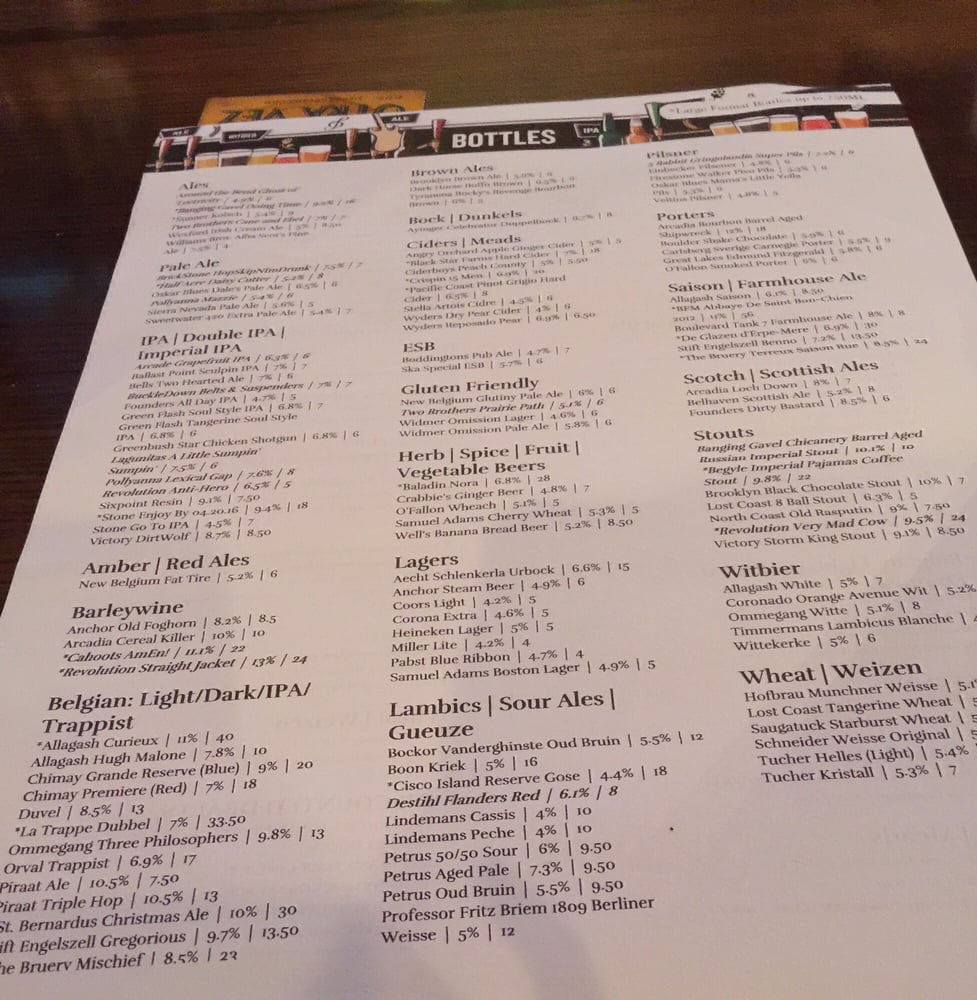 BOTTLES
ALE
ALE
IPA
*Large Format Bottles up to 750ML
Ales
Around the Bend Ghost of
/ 4.9% / 6
*Banging Gavel Doing Time / 9.0% / 16
*Sunner Kolsch | 5.4% | 9
Two Brothers Cane and Ebel | 7% / 7
Wexford Irish Cream Ale | 5% | 8.50
Williams Bros. Alba Scot's Pine
Ale | 7.5% | 4
Pale Ale
BrickStone HopSkipNImDrunk / 7.5% / 7
*Half Acre Daisy Cutter / 5.2% / 8
Oskar Blues Dale's Pale Ale | 6.5% | 6
Pollyanna Mazzie / 5.4% / 6
Sierra Nevada Pale Ale | 5.6% | 5
Sweetwater 420 Extra Pale Ale | 5.4% | 7
IPA | Double IPA |
Imperial IPA
Arcade Grapefruit IPA / 6.3% / 6
Ballast Point Sculpin IPA | 7% | 7
Bells Two Hearted Ale | 7% | 6
BuckleDown Belts & Suspenders / 7% / 7
Founders All Day IPA | 4.7% | 5
Green Flash Soul Style IPA | 6.8% | 7
Green Flash Tangerine Soul Style
IPA | 6.8% | 6
Greenbush Star Chicken Shotgun | 6.8% | 6
Lagunitas A Little Sumpin'
Sumpin' / 7.5% / 6
Pollyanna Lexical Gap / 7.6% / 8
Revolution Anti-Hero / 6.5% / 5
Sixpoint Resin | 9.1% | 7.50
*Stone Enjoy By 04.20.16 | 9.4% | 18
Stone Go To IPA | 4.5% | 7
Victory DirtWolf | 8.7% | 8.50
Amber | Red Ales
New Belgium Fat Tire | 5.2% | 6
Barleywine
Anchor Old Foghorn | 8.2% | 8.5
Arcadia Cereal Killer | 10% | 10
*Cahoots AmEn! / 11.1% / 22
*Revolution Straight Jacket / 13% / 24
Belgian: Light/Dark/IPA/
Trappist
*Allagash Curieux | 11% | 40
Allagash Hugh Malone | 7.8% | 10
Chimay Grande Reserve (Blue) | 9% | 20
Chimay Premiere (Red) | 7% | 18
Duvel | 8.5% | 13
*La Trappe Dubbel | 7% | 33.50
Ommegang Three Philosophers | 9.8% | 13
Orval Trappist | 6.9% | 17
Piraat Ale | 10.5% | 7.50
Piraat Triple Hop | 10.5% | 13
St. Bernardus Christmas Ale | 10% | 30
ift Engelszell Gregorious | 9.7% | 13.50
he Bruery Mischief | 8.5% | 23
Brown Ales
Brooklyn Brown Ale | 5.6% | 6
Dark Horse Boffo Brown | 6.5% | 6
Tyranena Rocky's Revenge Bourbon
Brown | 6% | 5
Bock | Dunkels
Ayinger Celebrator Doppelbock | 6.7% | 8
Ciders | Meads
Angry Orchard Apple Ginger Cider | 5% | 5
*Black Star Farms Hard Cider | 7% | 18
Ciderboys Peach County | 5% | 5.50
*Crispin 15 Men | 6.9% | 20
*Pacific Coast Pinot Grigio Hard
Cider | 6.5% | 8
Stella Artois Cidre | 4.5% | 6
Wyders Dry Pear Cider | 4% | 6
Wyders Reposado Pear | 6.9% | 6.50
ESB
Boddingtons Pub Ale | 4.7% | 7
Ska Special ESB | 5.7% | 6
Gluten Friendly
New Belgium Glutiny Pale Ale | 6% | 6
Two Brothers Prairie Path / 5.1% / 6
Widmer Omission Lager | 4.6% | 6
Widmer Omission Pale Ale | 5.8% | 6
Herb | Spice | Fruit |
Vegetable Beers
*Baladin Nora | 6.8% | 28
Crabbie's Ginger Beer | 4.8% | 7
O'Fallon Wheach | 5.1% | 5
Samuel Adams Cherry Wheat | 5.3% | 5
Well's Banana Bread Beer | 5.2% | 8.50
Lagers
Aecht Schlenkerla Urbock | 6.6% | 15
Anchor Steam Beer | 4.9% | 6
Coors Light | 4.2% | 5
Corona Extra | 4.6% | 5
Heineken Lager | 5% | 5
Miller Lite | 4.2% | 4
Pabst Blue Ribbon | 4.7% | 4
Samuel Adams Boston Lager | 4.9% | 5
Lambics | Sour Ales |
Gueuze
Bockor Vanderghinste Oud Bruin | 5.5% | 12
Boon Kriek | 5% | 16
*Cisco Island Reserve Gose | 4.4% | 18
Destihl Flanders Red / 6.1% / 8
Lindemans Cassis | 4% | 10
Lindemans Peche | 4% | 10
Petrus 50/50 Sour | 6% | 9.50
Petrus Aged Pale | 7.3% | 9.50
Petrus Oud Bruin | 5.5% | 9.50
Professor Fritz Briem 1809 Berliner
Weisse | 5% | 12
Pilsner
5 Rabbit Gringolandia Super Pils / 7.2% / 6
Einbecker Pilsener | 4.8% | 6
Firestone Walker Pivo Pils | 5.3% | 6
Oskar Blues Mama's Little Yella
Pils | 5.3% | 6
Veltins Pilsner | 4.8% | 5
Porters
Arcadia Bourbon Barrel Aged
Shipwreck | 12% | 18
Boulder Shake Chocolate | 5.9% | 6
Carlsberg Sverige Carnegie Porter | 5.5% | 9
Great Lakes Edmund Fitzgerald | 5.8% | 6
O'Fallon Smoked Porter | 6% | 6
Saison | Farmhouse Ale
Allagash Saison | 6.1% | 8.50
*BFM Abbaye De Saint Bon-Chien
2012 | 11% | 56
Boulevard Tank 7 Farmhouse Ale | 8% | 8
*De Glazen d'Erpe-Mere | 6.9% | 30
Stift Engelszell Benno | 7.2% | 13.50
*The Bruery Terreux Saison Rue | 8.5% | 24
Scotch | Scottish Ales
Arcadia Loch Down | 8% | 7
Belhaven Scottish Ale | 5.2% | 8
Founders Dirty Bastard | 8.5% | 6
Stouts
Banging Gavel Chicanery Barrel Aged
Russian Imperial Stout | 10.1% | 10
*Begyle Imperial Pajamas Coffee
Stout | 9.8% / 22
Brooklyn Black Chocolate Stout | 10% | 7
Lost Coast 8 Ball Stout | 6.3% | 5
North Coast Old Rasputin | 9% | 7.50
*Revolution Very Mad Cow / 9.5% / 24
Victory Storm King Stout | 9.1% | 8.50
Witbier
Allagash White | 5% | 7
Coronado Orange Avenue Wit | 5.2%
Ommegang Witte | 5.1% | 8
Timmermans Lambicus Blanche |
Wittekerke | 5% | 6
Wheat | Weizen
Hofbrau Munchner Weisse | 5.1
Lost Coast Tangerine Wheat | 5
Saugatuck Starburst Wheat | 5
Schneider Weisse Original | 5
Tucher Helles (Light) | 5.4%
Tucher Kristall | 5.3% | 7